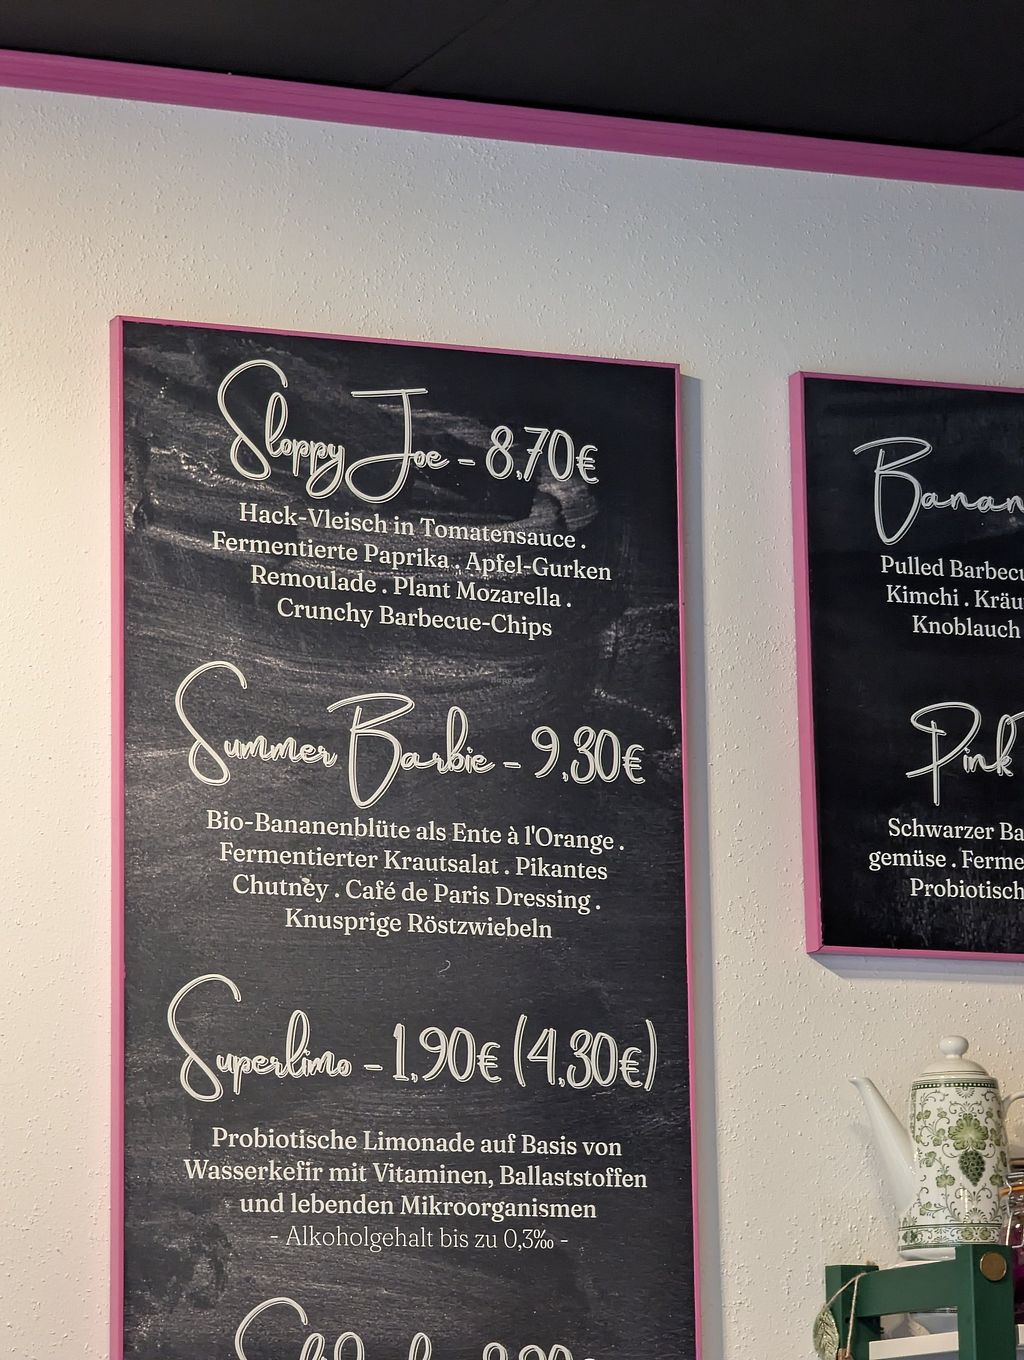 Sloppy Joe - 8,70€
Hack-Vleisch in Tomatensauce .
Fermentierte Paprika . Apfel-Gurken
Remoulade . Plant Mozarella .
Crunchy Barbecue-Chips
Summer Barbie - 9,30€
Bio-Bananenblüte als Ente à l'Orange .
Fermentierter Krautsalat . Pikantes
Chutney . Café de Paris Dressing .
Knusprige Röstzwiebeln
Superlimo - 1,90€ (4,30€)
Probiotische Limonade auf Basis von
Wasserkefir mit Vitaminen, Ballaststoffen
und lebenden Mikroorganismen
- Alkoholgehalt bis zu 0,3‰ -
Pulled
Kimchi .
Knoblauch
Pink
Schwarzer
gemüse .